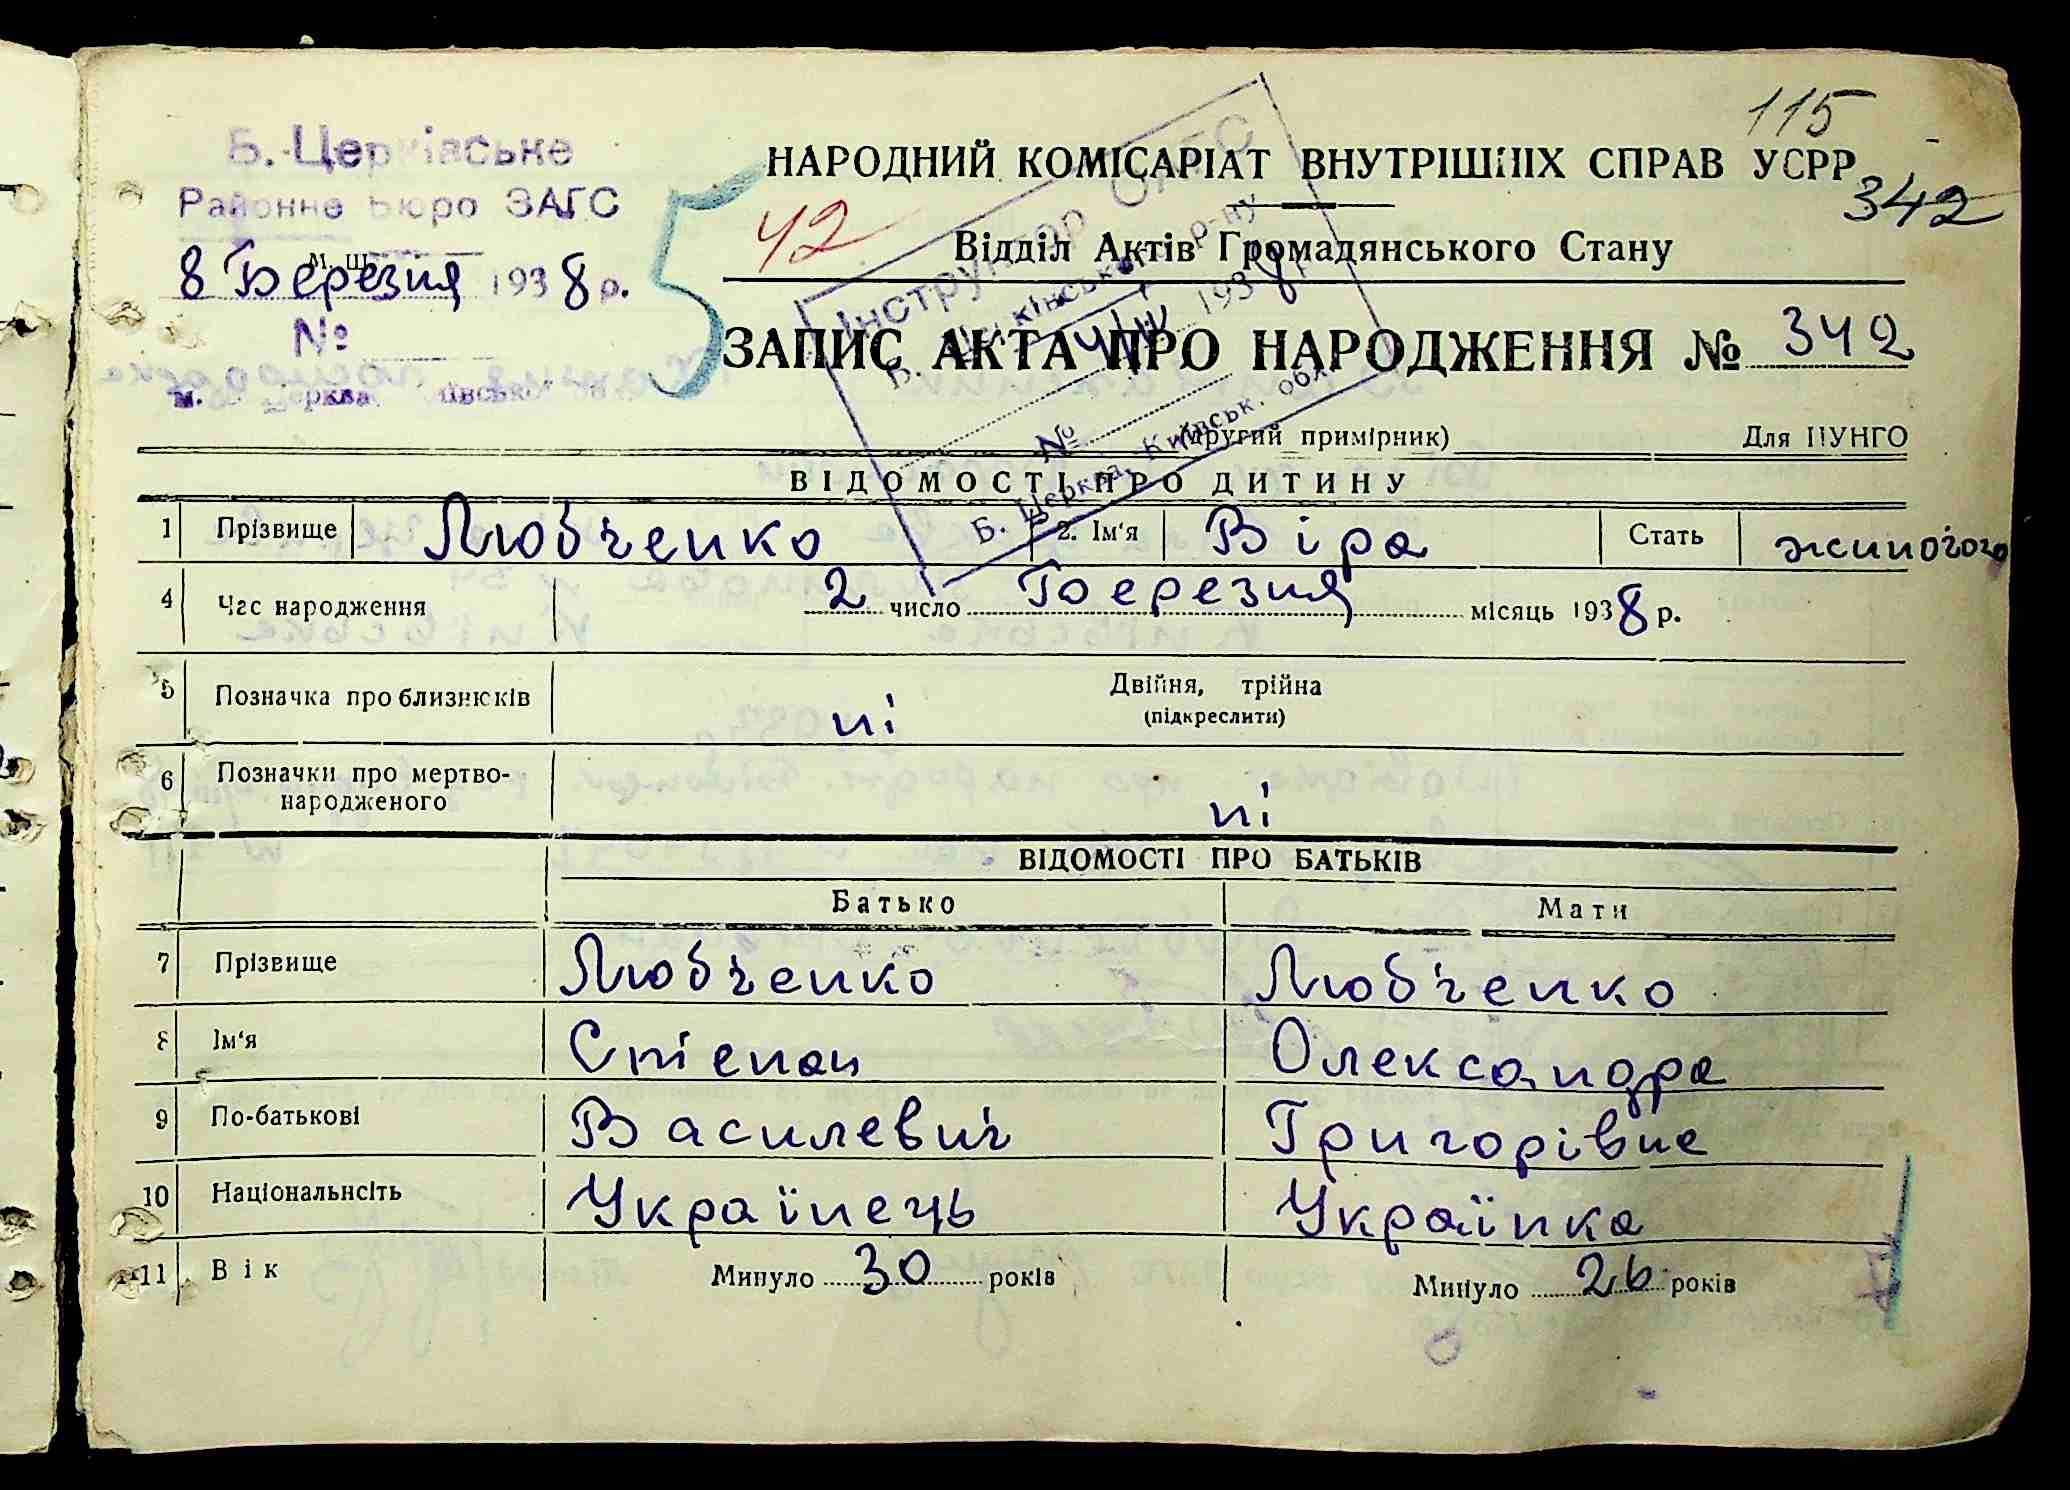 115
Б. Церківське
Районне Бюро ЗАГС
8 Березня 1938 р.
№
м. рква
5
42
НАРОДНИЙ КОМІСАРІАТ ВНУТРІШНІХ СПРАВ УСРР
342
Відділ Актів Громадянського Стану
ЗАПИС АКТА ПРО НАРОДЖЕННЯ № 342
Інструктор ОАГС
Б. Церківського р-ну
193 8 р.
№
Б. Церква, Київськ. обл.
(другий примірник) Для ЦУНГО
ВІДОМОСТІ ПРО ДИТИНУ
1 Прізвище Любченко 2. Ім'я Віра Стать жиночого
4 Час народження 2 число Березня місяць 1938 р.
5 Позначка про близнюків ні Двійня, трійна
(підкреслити)
6 Позначки про мертво-
народженого ні
ВІДОМОСТІ ПРО БАТЬКІВ
Батько Мати
7 Прізвище Любченко Любченко
8 Ім'я Степан Олександра
9 По-батькові Василевич Григорівна
10 Національнсіть Українець Українка
11 Вік Минуло 30 років Минуло 26 років